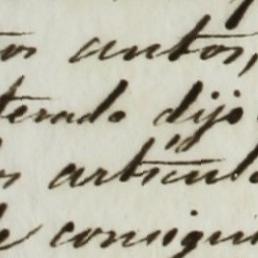 tos autos,
terado dijo
os articul
de consigui